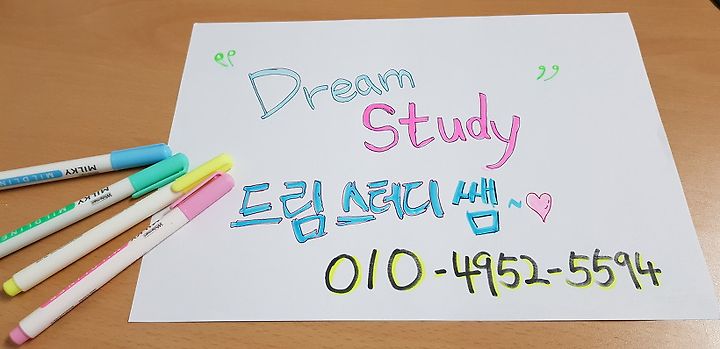 “Dream
Study”
드림 스터디 쌤~♡
010-4952-5594
MILKY MILDLINE
MILKY MILDLINE